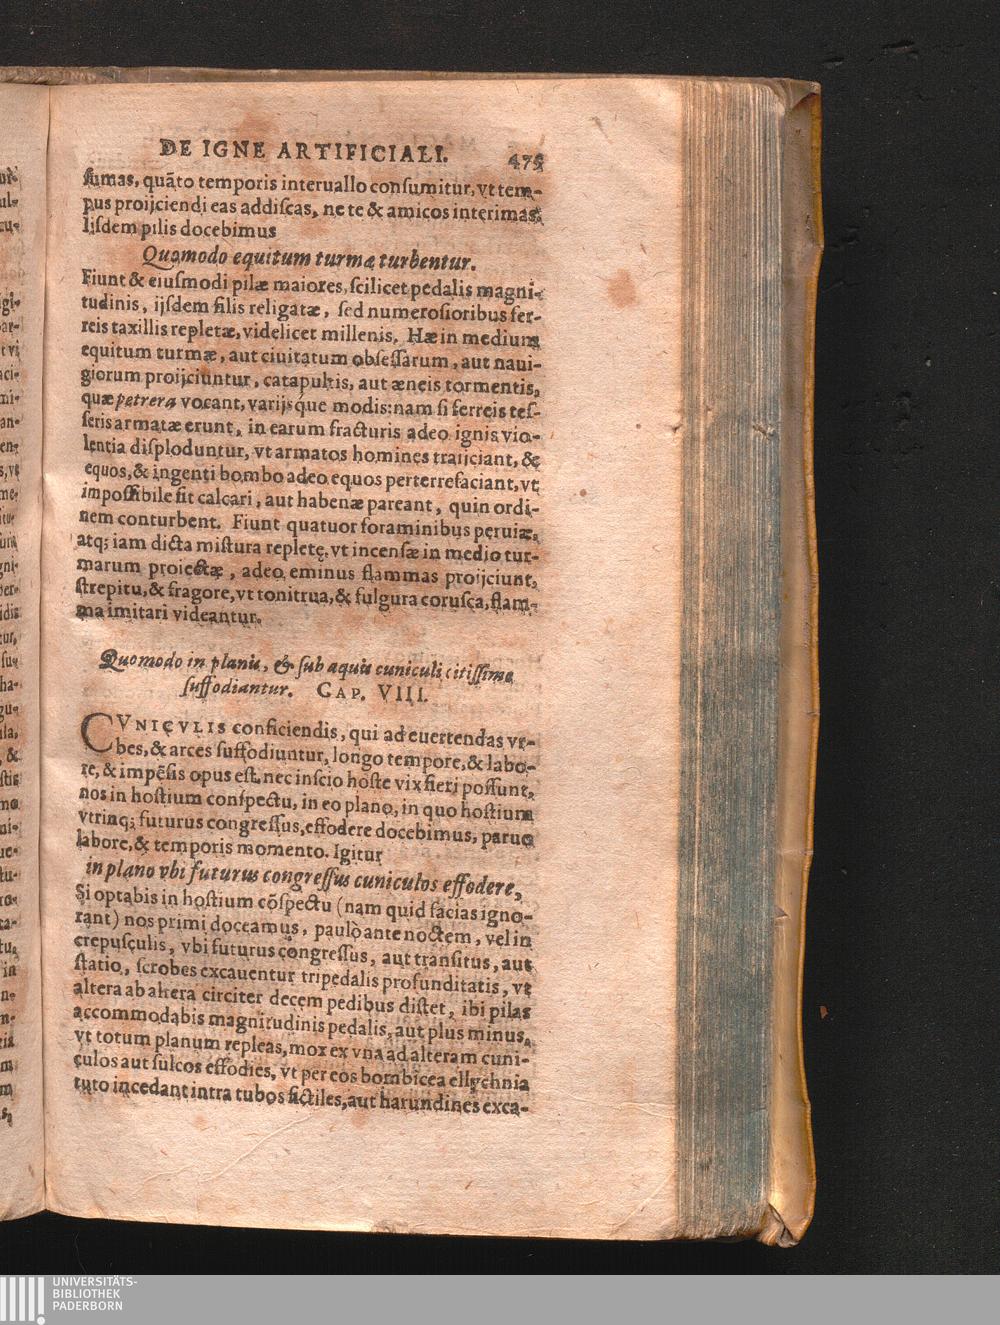 DE IGNE ARTIFICIALI. 475
sumas, quãto temporis interuallo consumitur, vt tem-
pus proijciendi eas addiscas, ne te & amicos interimas
Iisdem pilis docebimus
Quomodo equitum turmæ turbentur.
Fiunt & eiusmodi pilæ maiores, scilicet pedalis magni-
tudinis, ijsdem filis religatæ, sed numerosioribus fer-
reis taxillis repletæ, videlicet millenis. Hæ in medium
equitum turmæ, aut ciuitatum obsessarum, aut naui-
giorum proijciuntur, catapultis, aut æneis tormentis,
quæ petrera vocant, varijsq́ue modis: nam si ferreis tes-
seris armatæ erunt, in earum fracturis adeo ignis vio-
lentia disploduntur, vt armatos homines traijciant, &
equos, & ingenti bombo adeo equos perterrefaciant, vt
impossibile sit calcari, aut habenæ pareant, quin ordi-
nem conturbent. Fiunt quatuor foraminibus peruiæ,
atq; iam dicta mistura repletę, vt incensæ in medio tur-
marum proiectæ, adeo eminus flammas proijciunt,
strepitu, & fragore, vt tonitrua, & fulgura corusca, flam-
ma imitari videantur.
Quomodo in planis, & sub aquis cuniculi citissime
suffodiantur. CAP. VIII.
CVNICVLIS conficiendis, qui ad euertendas vr-
bes, & arces suffodiuntur, longo tempore, & labo-
re, & impẽsis opus est, nec inscio hoste vix fieri possunt,
nos in hostium conspectu, in eo plano, in quo hostium
vtrinq; futurus congressus, effodere docebimus, paruo
labore, & temporis momento. Igitur
in plano vbi futurus congressus cuniculos effodere,
Si optabis in hostium cõspectu (nam quid facias igno-
rant) nos primi doceamus, paulò ante noctem, vel in
crepusculis, vbi futurus congressus, aut transitus, aut
statio, scrobes excauentur tripedalis profunditatis, vt
altera ab altera circiter decem pedibus distet, ibi pilas
accommodabis magnitudinis pedalis, aut plus minus,
vt totum planum repleas, mox ex vna ad alteram cuni-
culos aut sulcos effodies, vt per eos bombicea ellychnia
tuto incedant intra tubos fictiles, aut harundines exca-
UNIVERSITÄTS-
BIBLIOTHEK
PADERBORN